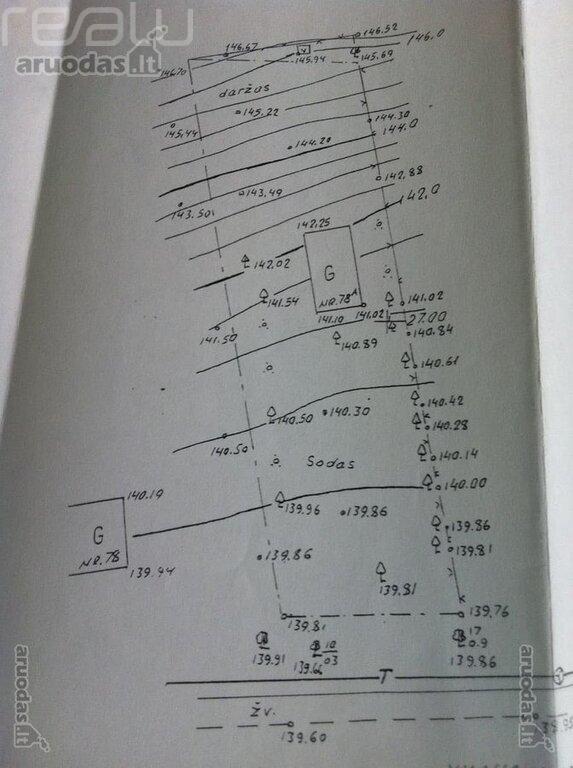 realu
aruodas.lt
146.67
146.52
146.0
146.70
145.94
145.69
daržas
145.22
145.44
144.30
144.20
144.0
143.49
142.88
143.50
142.0
142.25
142.02
G
№.78A
141.54
141.10
141.02
141.02
27.00
141.50
140.84
140.89
140.61
140.42
140.50
140.30
140.28
140.50
Sodas
140.14
140.19
140.00
139.96
139.86
G
№.78
139.86
139.94
139.86
139.81
139.81
139.81
139.76
139.91
10
03
17
0.9
139.86
T
žv.
139.60
aruodas.lt
aruodas.lt